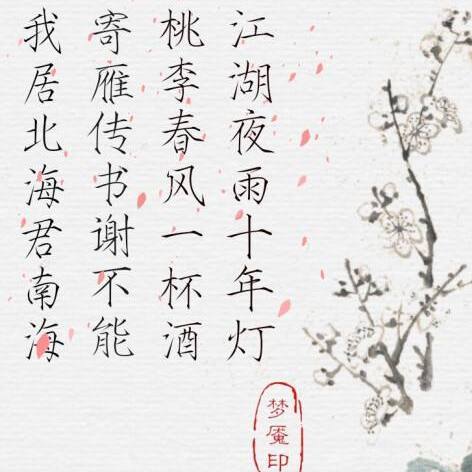 我居北海君南海
寄雁传书谢不能
桃李春风一杯酒
江湖夜雨十年灯
梦魇印